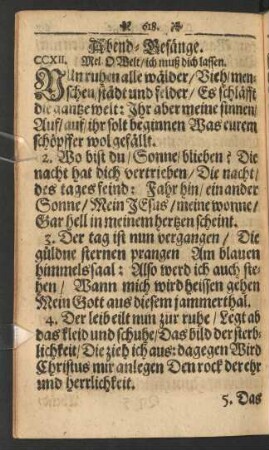 618.
Abend-Gesänge.
CCXII. Mel. O Welt/ ich muß dich lassen.
NUn ruhen alle wälder/ Vieh/ men-
schen städt und felder/ Es schläfft
die gantze welt: Ihr aber meine sinnen/
Auf/ auf/ ihr solt beginnen Was eurem
schöpffer wol gefällt.
2. Wo bist du/ Sonne/ blieben? Die
nacht hat dich vertrieben/ Die nacht/
des tages feind: Fahr hin/ ein ander
Sonne/ Mein JEsus/ meine wonne/
Gar hell in meinem hertzen scheint.
3. Der tag ist nun vergangen/ Die
güldne sternen prangen Am blauen
himmels saal: Also werd ich auch ste-
hen/ Wann mich wird heissen gehen
Mein Gott aus diesem jammerthal.
4. Der leib eilt nun zur ruhe/ Legt ab
das kleid und schuhe/ Das bild der sterb-
lichkeit/ Die zieh ich aus: dagegen Wird
Christus mir anlegen Den rock der ehr
und herrlichkeit.
5. Das